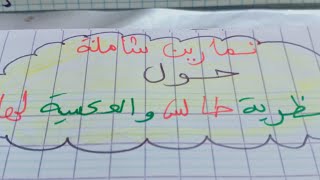 تمارين شاملة
حول
نظرية طالس والعكسية لها